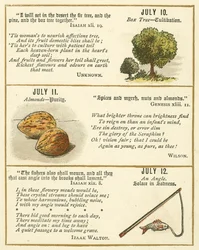 "I will set in the desert the fir tree, and the
pine, and the box tree together."
ISAIAH xli. 19.
'Tis woman's to nourish affections tree,
And its fruit domestic bliss shall be;
'Tis her's to culture with patient toil
Each heaven-born plant in the heart's
deep soil;
And fruits and flowers her toil shall greet,
Richest flavours and odours on earth
that meet.
UNKNOWN.
JULY 10.
Box Tree—Cultivation.
JULY 11.
Almonds—Purity.
"Spices and myrrh, nuts and almonds."
GENESIS xliii. 11.
What brighter throne can brightness find
To reign on than an infant's mind,
Ere sin destroy, or error dim
The glory of the Seraphim?
Oh! vision fair; that I could be
Again as young, as pure, as thee!
WILSON.
"The fishers also shall mourn, and all they
that cast angle into the brooks shall lament."
ISAIAH xix. 8.
I, in these flowery meads would be,
These crystal streams should solace me;
To whose harmonious, bubbling noise,
I with my angle would rejoice.
There bid good morning to each day,
There meditate my time away;
And angle on; and beg to have
A quiet passage to a welcome grave.
ISAAK WALTON.
JULY 12.
An Angle.
Solace in Sadness.